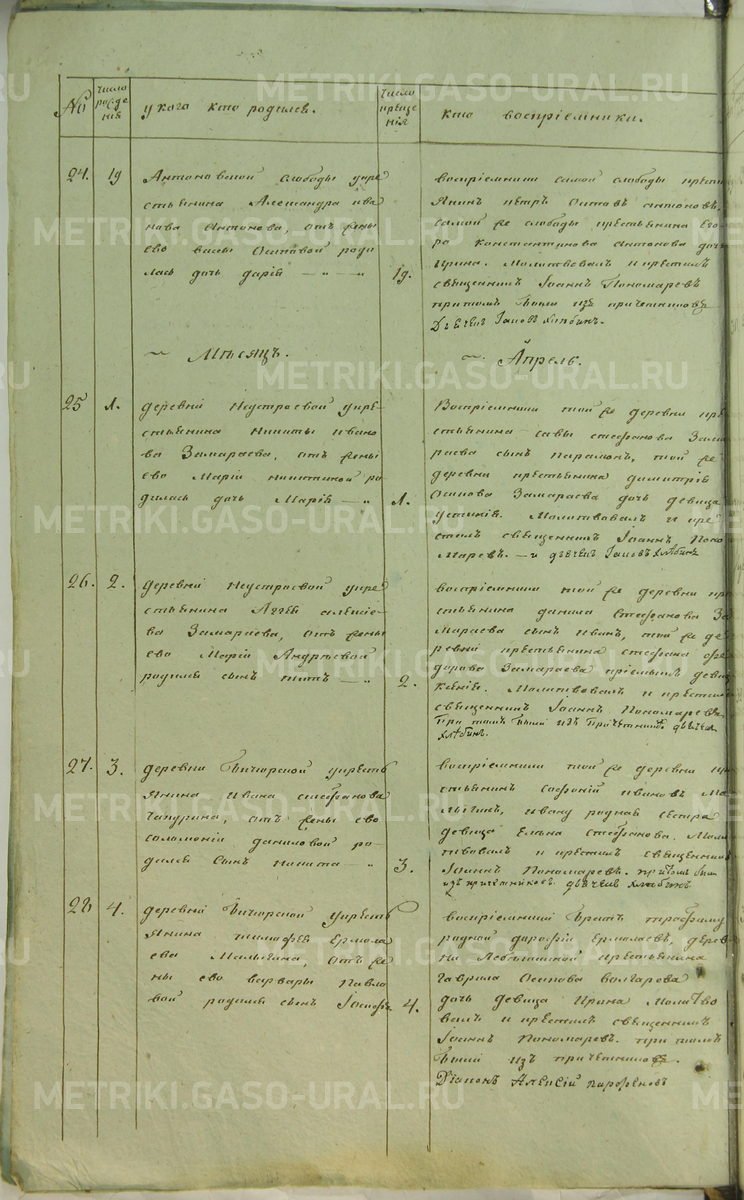 №
число рожде нія
у кого кто родился.
число креще нія
кто воспріемники.
24.
19
Антоновской слободы у кре
стьянина Александра Ива
нова Антонова, отъ жены
его Вассы Осиповой роди
лась дочь Дарія
19.
воспріемники самой слободы кресть
янинъ Петръ Осиповъ Антоновъ,
самой же слободы крестьянина Его
ра Константинова Антонова дочь
Ирина. Молитвовалъ и крестилъ
священникъ Іоаннъ Пономаревъ
притомъ были изъ причетниковъ
Дьячекъ Іаковъ Хлѣбинъ.
Мѣсяцъ.
Апрель.
25
1.
деревни Неустроевой у кре-
стьянина Никиты Ивано
ва Замараева, отъ жены
его Маріи Никитиной ро
дилась дочь Марія
1.
Воспріемники той же деревни кре
стьянина Савы Стефанова Зама
раева сынъ Парамонъ, той же
деревни крестьянина Димитрія
Осипова Замараева дочь девица
Устинія. Молитвовалъ и кре
стилъ священникъ Іоаннъ Поно
маревъ. — и дьячекъ Іаковъ Хлѣбинъ
26.
2.
деревни Неустроевой у кре
стьянина Аггея Алексіе
ва Замараева, отъ жены
его Маріи Андрѣевой
родился сынъ Титъ
2.
воспріемники той же деревни кре
стьянина Данила Стефанова За
мараева сынъ Иванъ, той же де
ревни крестьянина Стефана Фе
дорова Замараева пріемышъ девица
Ксенія. Молитвовалъ и крестилъ
священникъ Іоаннъ Пономаревъ.
При томъ былъ изъ причетниковъ дьячекъ
Хлѣбинъ.
27.
3.
деревни Бичюрской у кресть
янина Ивана Стефанова
Чапурина, отъ жены его
Соломоніи Даниловой ро-
дился сынъ Никита
3.
воспріемники той же деревни кре
стьянинъ Софоній Ивановъ Ма
лыгинъ, Ивану родная сестра
девица Елена Стефанова. Моли
твовалъ и крестилъ священникъ
Іоаннъ Пономаревъ. притомъ былъ
изъ причетниковъ дьячекъ Хлѣбинъ
28
4.
деревни Бичюрской у кресть
янина Тимофея Ермола
ева Малыгина, отъ же
ны его Варвары Павло
вой родился сынъ Іосифъ
4.
воспріемники братъ
родной Дорофей Ермолаевъ, дерев
ни Лебяжской крестьянина
Гаврила Осипова Болгарова
дочь девица Ирина Молитво
валъ и крестилъ священникъ
Іоаннъ Пономаревъ. при томъ
былъ изъ причетниковъ.
Діаконъ Алексій Парфеновъ
METRIKI.GASO-URAL.RU